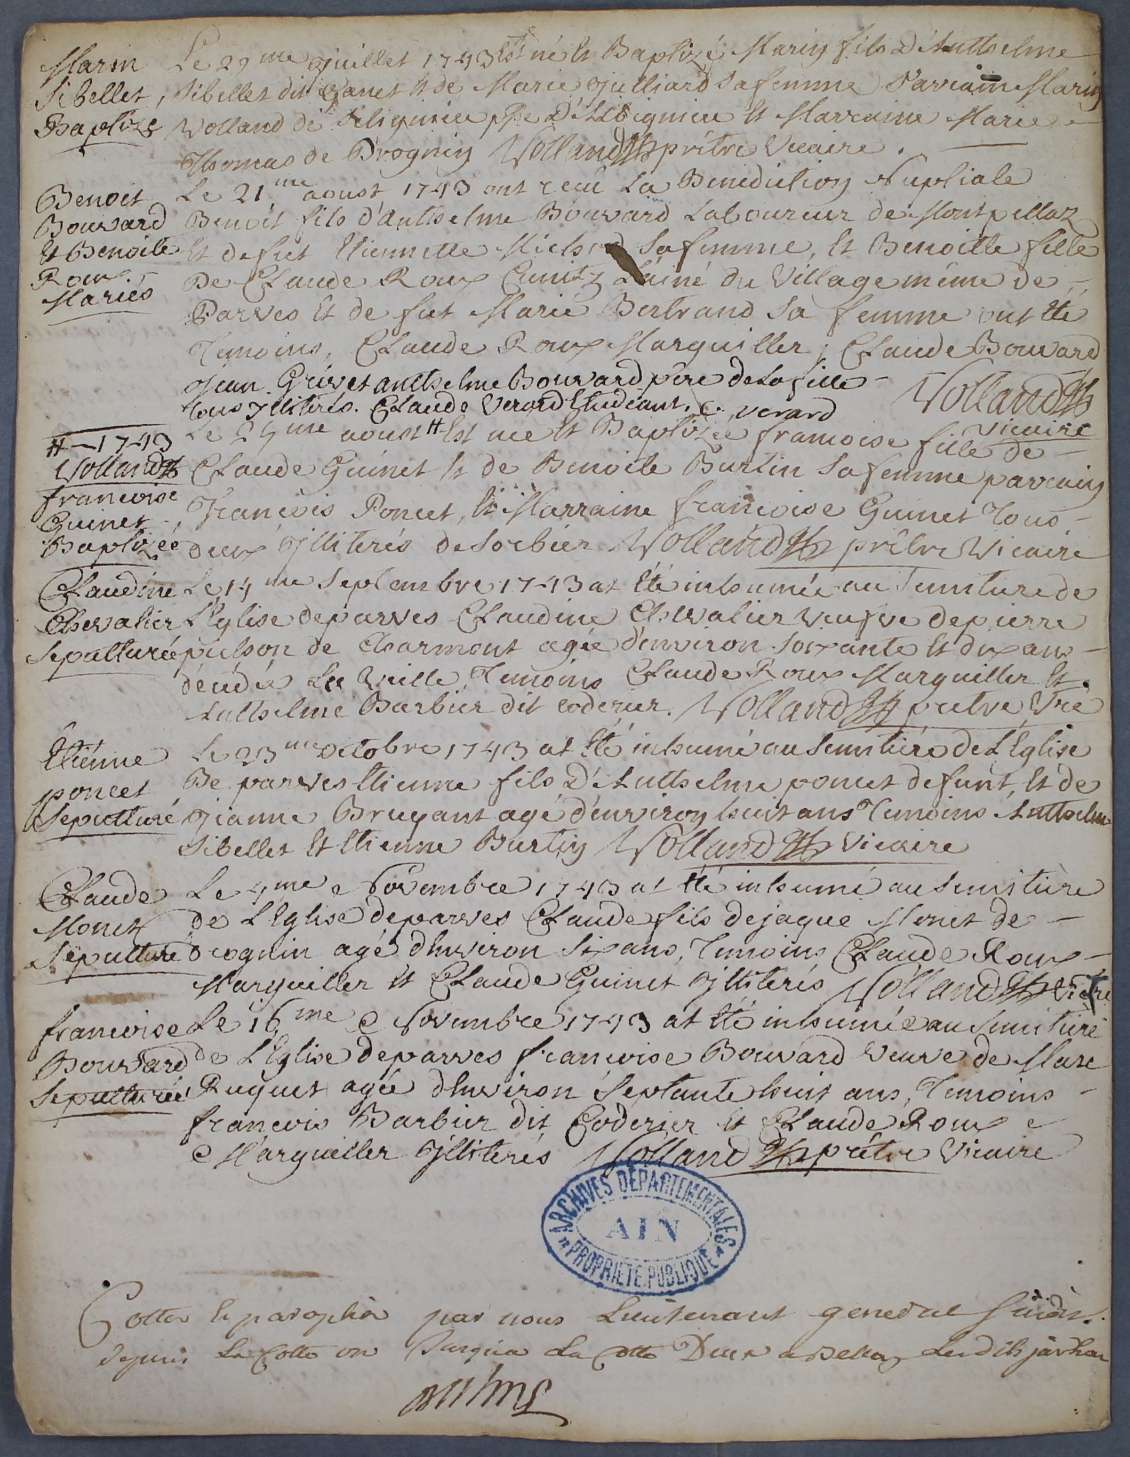 Marin
Sibellet,
Baptizé
Le 29me juillet 1743 Est né Et Baptizé Marin fils D'Anthelme
Sibellet dit ganet Et de Marie Julliard Sa femme Parrain Marin
Volland de Et Marraine Marie
Thomas de Brognin Volland prêtre Vicaire.
Benoit
Bouvard
Et Benoite
Roux
Mariés
Le 21me aoust 1743 ont reçu La Benediction Nuptiale
Benoit fils d'Anthelme Bouvard Laboureur de Montpellaz
Et de fut Etiennette Michud Sa femme, Et Benoitte fille
De Claude Roux L'ainé du Village même de
Parves Et de fut Marie Bertrand Sa femme ont Eté
Temoins, Claude Roux Marguiller, Claude Bouvard
Jean anthelme Bouvard père de La fille
tous jlliterés. Claude Verard Etudiant. C. verard
Volland
vicaire
# 1743
Volland
francoise
Guinet
Baptizée
Le 29me aoust # Est née Et Baptizée francoise fille de
Claude Guinet Et de Benoite Burtin Sa femme parrain
François Poncet, Et Marraine francoise Guinet Tous
deux jlliterés de Sorbier Volland prêtre Vicaire
Claudine
Chevalier
Sepulturée
Le 14me Septembre 1743 at Eté inhumée au Semiture de
L'Eglise de parves Claudine Chevalier Veufve de pierre
pulson de Charmont agée d'environ Soixante Et dix ans
décédée La Veille, Temoins Claude Roux Marguiller Et
Anthelme Barbier dit coderier. Volland prêtre, Vre
Etiénne
poncet
Sepulturé
Le 23me octobre 1743 at Eté inhumé au Semitière de L'Eglise
De parves Etienne fils D'Anthelme poncet defunt, Et de
Jianne Bruyant agé d'environ huit ans Temoins Anthelme
Sibellet Et Etienne Burtin Volland Vicaire
Claude
Monet
Sepulturé
Le 4me Novembre 1743 at Eté inhumé au Semitière
de L'Eglise de parves Claude fils de jaque Monet de
brognin agé d'Environ Six ans, Temoins Claude Roux
Marguiller Et Claude Guinet jlliterés Volland Vicre
francoise
Bouvard
Sepulturée
Le 16me Novembre 1743 at Eté inhumée au Semituré
de L'Eglise de parves francoise Bouvard Veuve de Marc
Ruguet agée d'Environ Septante huit ans, Temoins
francois Barbier dit Coderier Et Claude Roux
Marguiller jlliterés Volland prêtre Vicaire
ARCHIVES DÉPARTEMENTALES
AIN
PROPRIÉTÉ PUBLIQUE
Cotté Et paraphé par nous Lieutenant general
depuis La Cotte un Jusqua La Cotte Deux a Belley